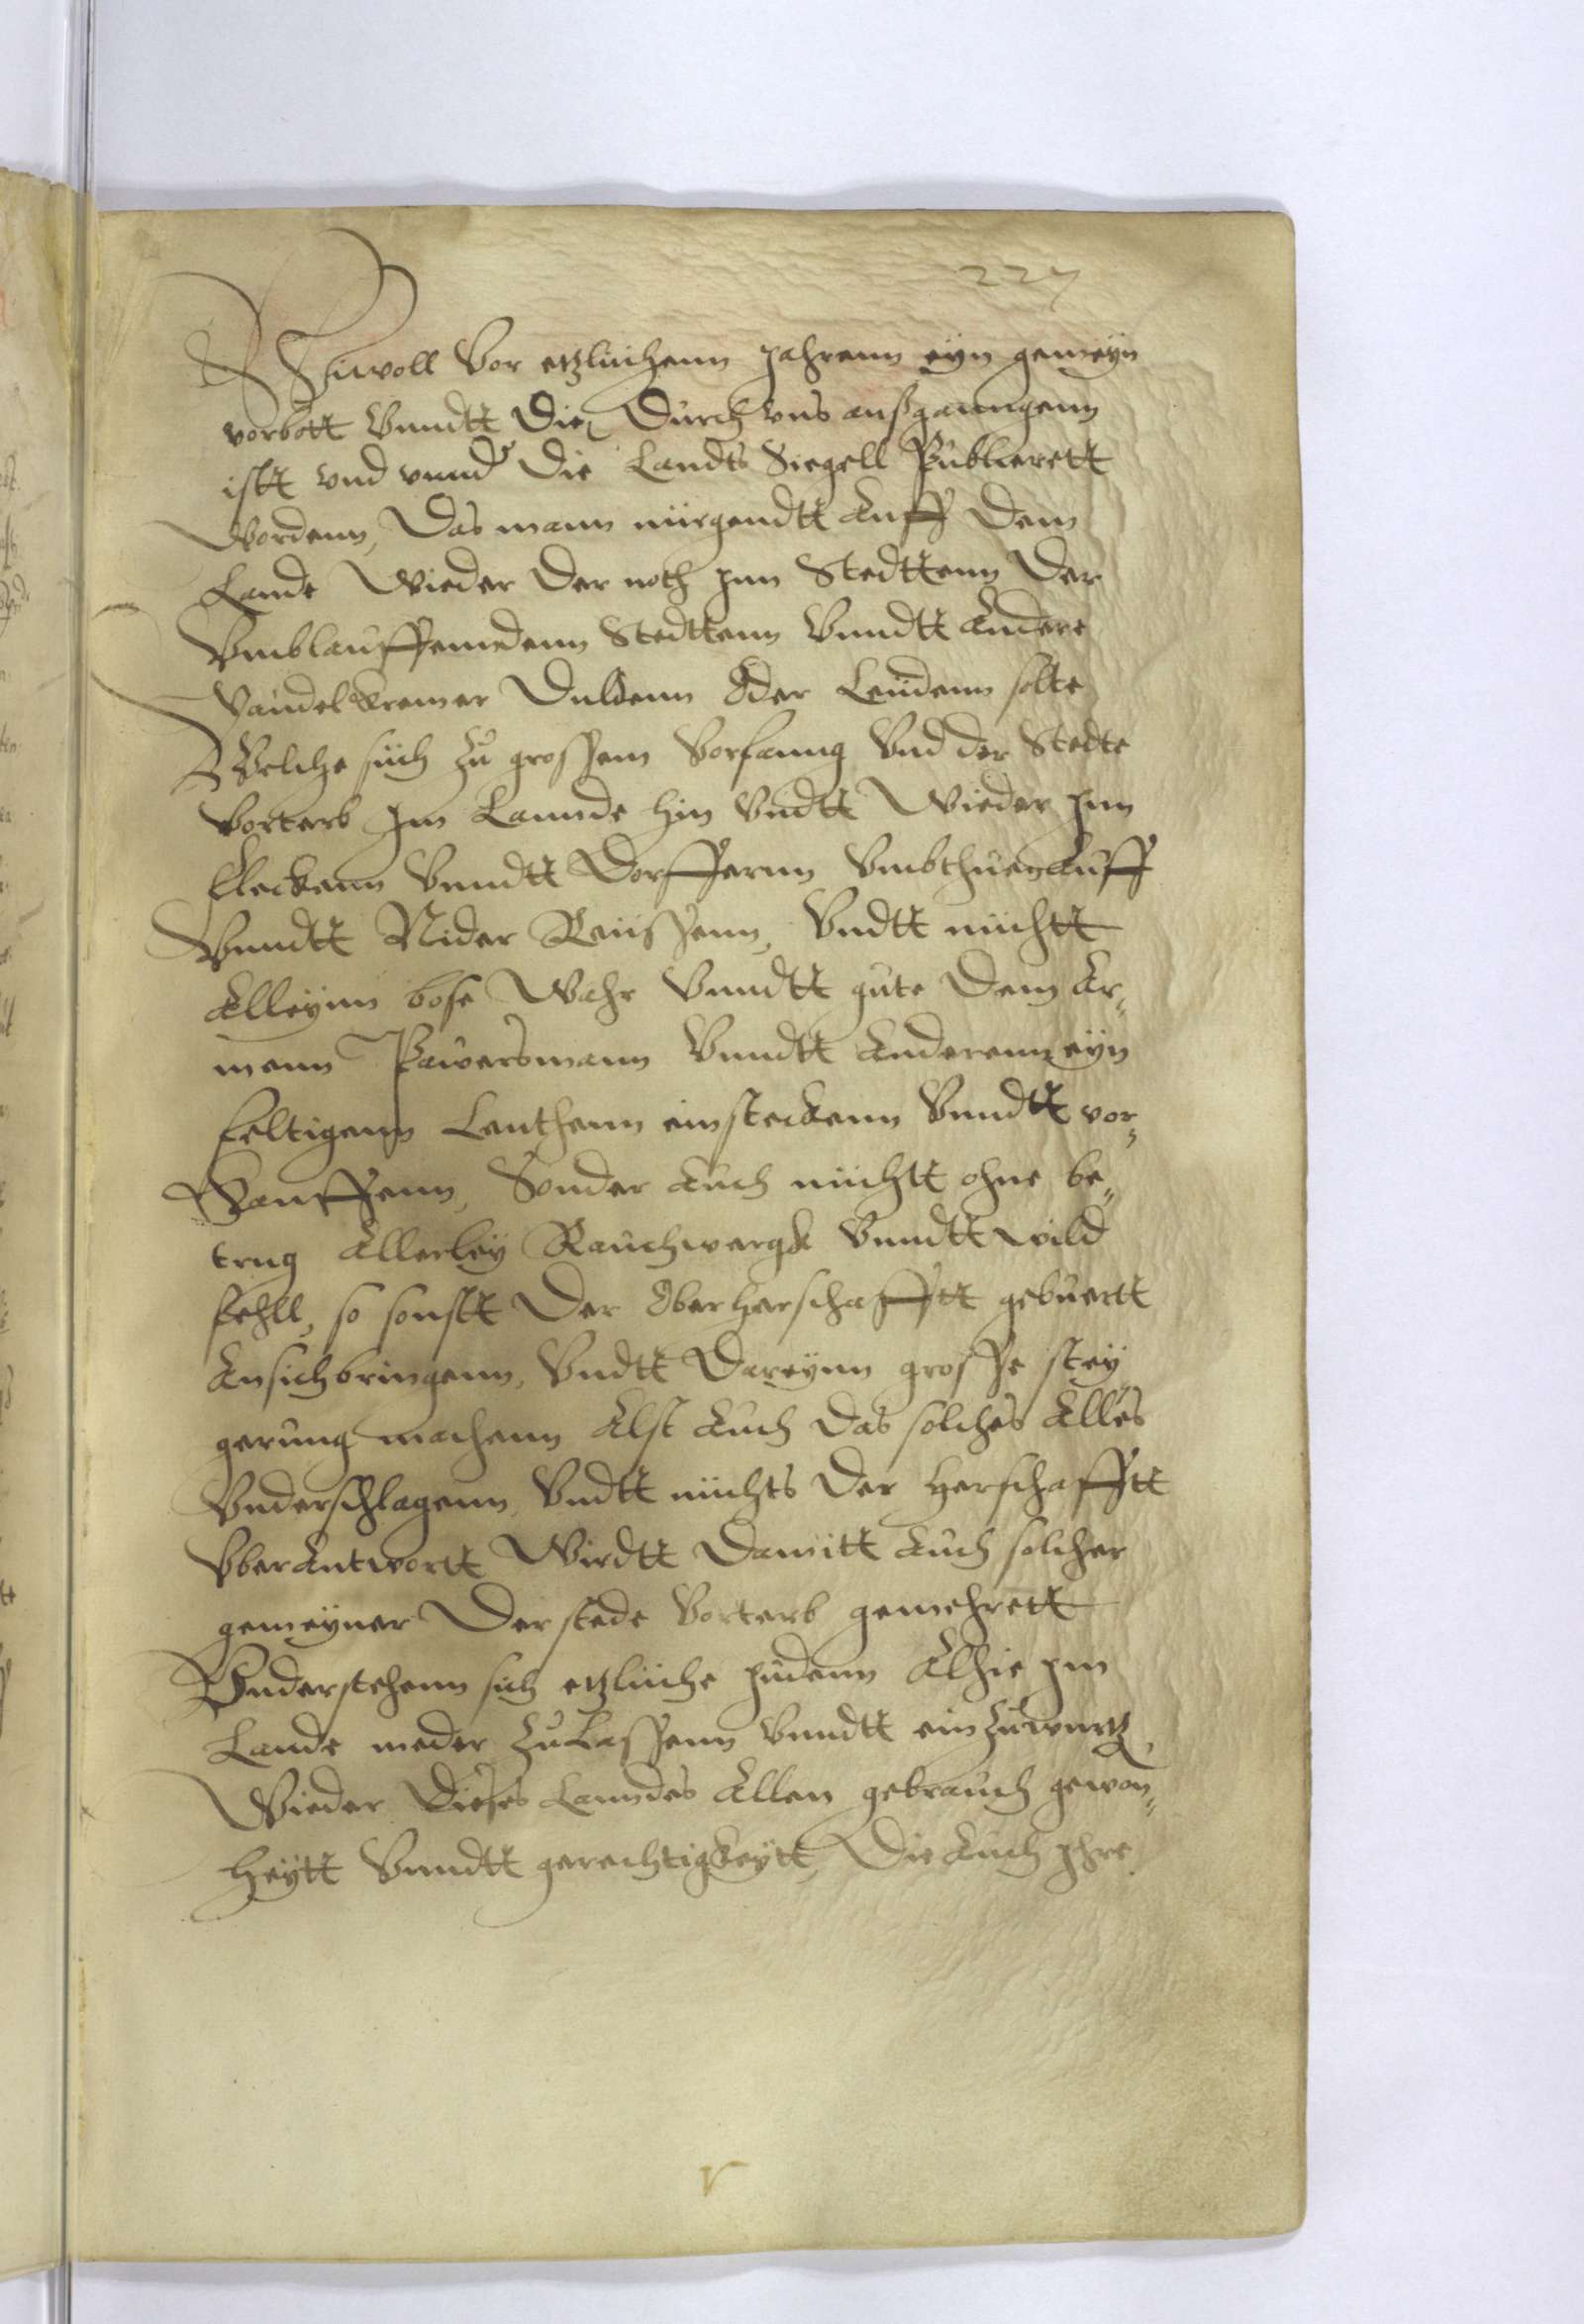 227
Wiwoll Vor etzlichenn jahrenn eyn gemeyn
vorbott Vnndtt Die Durch vns außganngenn
istt vnd vnnd Die Landts Siegell Publicrett
Wordenn, Das mann nirgendtt Auff Dem
Lande Wieder Der noth jnn Stedttenn Der
Vmblauffenndenn Stedttenn Vnndtt Andere
Handelkremer Duldenn Oder Leidenn solte
Welche sich zu grossem Vorfanng Vnd der Stedte
Vorterb Jm Lannde hin Vndtt Wieder jnn
fleckenn Vnndtt Dorffernn Vmbthuen Auff
Vnndtt Nider Reissenn, Vndtt nichtt
Alleynn bose Wahr Vnndtt gute Dem Ar„
menn Pauersmann Vnndtt Anderenn eyn
feltigenn Leuthenn einsteckenn Vnndtt vor„
Kauffenn, Sonder Auch nichtt ohne be„
trug Allerley Rauchwergk Vnndtt wild
fehll, so sonstt Der Oberherschafftt gebuertt
Ansich bringenn, Vndtt Dareynn grosse stey
gerung machenn Alst Auch Das solches Alles
Vnderschlagenn Vndtt nichts Der Herschafftt
VberAntwortt Wirdtt Damitt Auch solcher
gemeyner Der stede Vorterb gemehrett
Vnderstehenn sich etzliche judenn Alhie jm
Lande nieder zu Lassenn Vnndtt ein zuwurtz
Wieder Dieses Lanndes Allen gebrauch gewon„
heytt Vnndtt gerechtigkeytt, Die Auch jhre